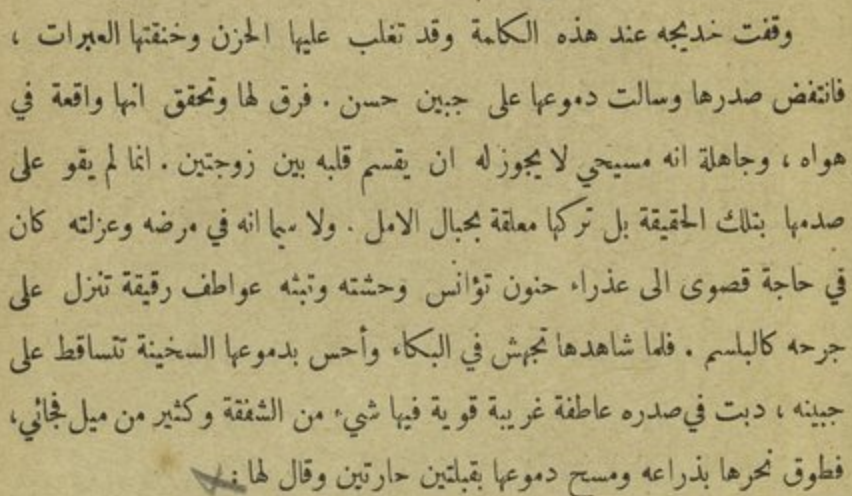 وقفت خديجه عند هذه الكلمة وقد تغلب عليها الحزن وخنقتها العبرات ،
فانتفض صدرها وسالت دموعها على جبين حسن . فرق لها وتحقق انها واقعة في
هواه ، وجاهلة انه مسيحي لا يجوز له ان يقسم قلبه بين زوجتين . انما لم يقو على
صدمها بتلك الحقيقة بل تركها معلقة بحبال الامل . ولا سيما انه في مرضه وعزلته كان
في حاجة قصوى الى عذراء حنون تؤانس وحشته وتبثه عواطف رقيقة تنزل على
جرحه كالبلسم . فلما شاهدها تجهش في البكاء وأحس بدموعها السخينة تتساقط على
جبينه ، دبت في صدره عاطفة غريبة قوية فيها شيء من الشفقة وكثير من ميل فجائي،
فطوق نحرها بذراعه ومسح دموعها بقبلتين حارتين وقال لها :